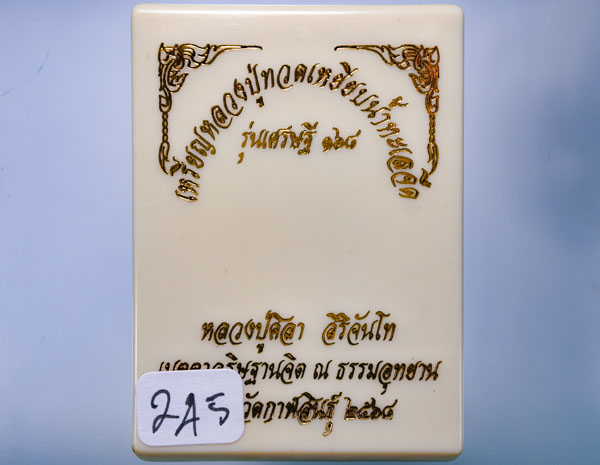 เหรียญหลวงปู่ทวดเหยียบน้ำทะเลจืด
รุ่นเศรษฐี ๑๖๘
หลวงปู่ศิลา สิริจันโท
เมตตาอธิษฐานจิต ณ ธรรมอุทยาน
วัดกาฬสินธุ์ ๒๕๖๘
2A5